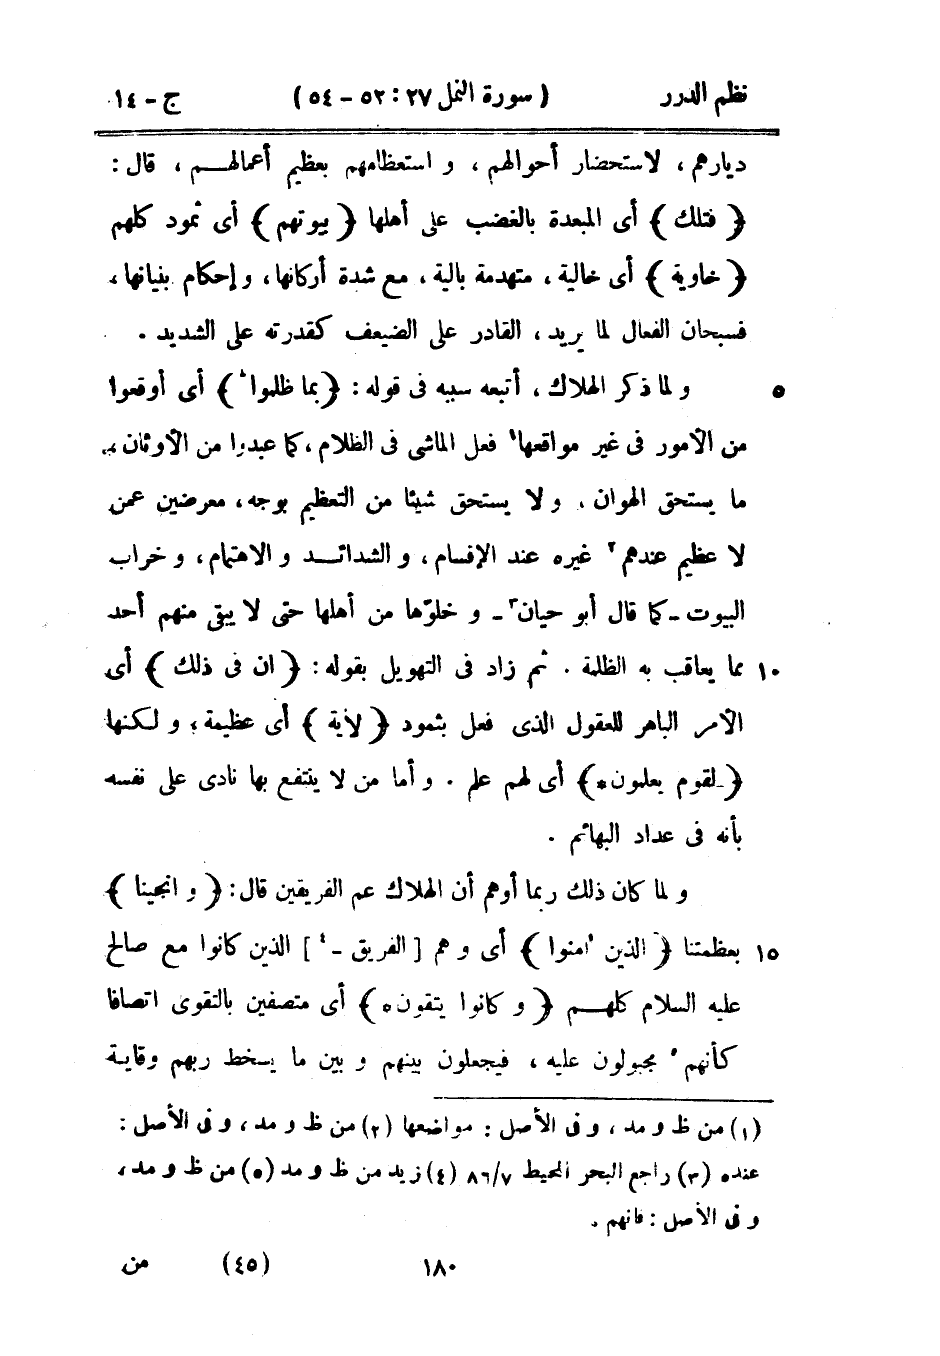 نظم الدرر ( سورة النمل ٢٧ : ٥٢ – ٥٤ ) ج – ١٤
ديارهم ، لاستحضار أحوالهم ، و استعظامهم بعظيم أعمالهـــم ، قال :
﴿ فتلك ﴾ أى المبعدة بالغضب على أهلها ﴿ بيوتهم ﴾ أى ثمود كلهم
﴿ خاوية ﴾ أى خالية ، متهدمة بالية ، مع شدة أركانها ، و إحكام بنيانها ،
فسبحان الفعال لما يريد ، القادر على الضعيف كقدرته على الشديد .
٥ و لما ذكر الهلاك ، أتبعه سببه فى قوله : ﴿ بما ظلموا ﴾ أى أوقعوا
من الأمور فى غير مواقعها١ فعل الماشى فى الظلام ، كما عبدوا من الأوثان
ما يستحق الهوان ، و لا يستحق شيئا من التعظيم بوجه ، معرضين عمن
لا عظيم عندهم٢ غيره عند الإقسام ، و الشدائــد و الاهتمام ، و خراب
البيوت ـ كما قال أبو حيان٣ ـ و خلوّها من أهلها حتى لا يبقى منهم أحد
١٠ مما يعاقب به الظلمة . ثم زاد فى التهويل بقوله : ﴿ ان فى ذلك ﴾ أى
الأمر الباهر للعقول الذى فعل بثمود ﴿ لأية ﴾ أى عظيمة ، و لكنها
﴿ لقوم يعلمون * ﴾ أى لهم علم . و أما من لا ينتفع بها نادى على نفسه
بأنه فى عداد البهائم .
و لما كان ذلك ربما أوهم أن الهلاك عم الفريقين قال : ﴿ و انجينا ﴾
١٥ بعظمتنا ﴿ الذين اٰمنوا ﴾ أى و هم [ الفريق ـ ٤ ] الذين كانوا مع صالح
عليه السلام كلهـــم ﴿ و كانوا يتقون ه ﴾ أى متصفين بالتقوى اتصافا
كأنهم٥ مجبولون عليه ، فيجعلون بينهم و بين ما يسخط ربهم وقاية
(١) من ظ و مد ، و فى الأصل : مواضعها (٢) من ظ و مد ، و فى الأصل :
عنده (٣) راجع البحر المحيط ٨٦/٧ (٤) زيد من ظ و مد (٥) من ظ و مد ،
و فى الأصل : فانهم .
١٨٠ (٤٥) من